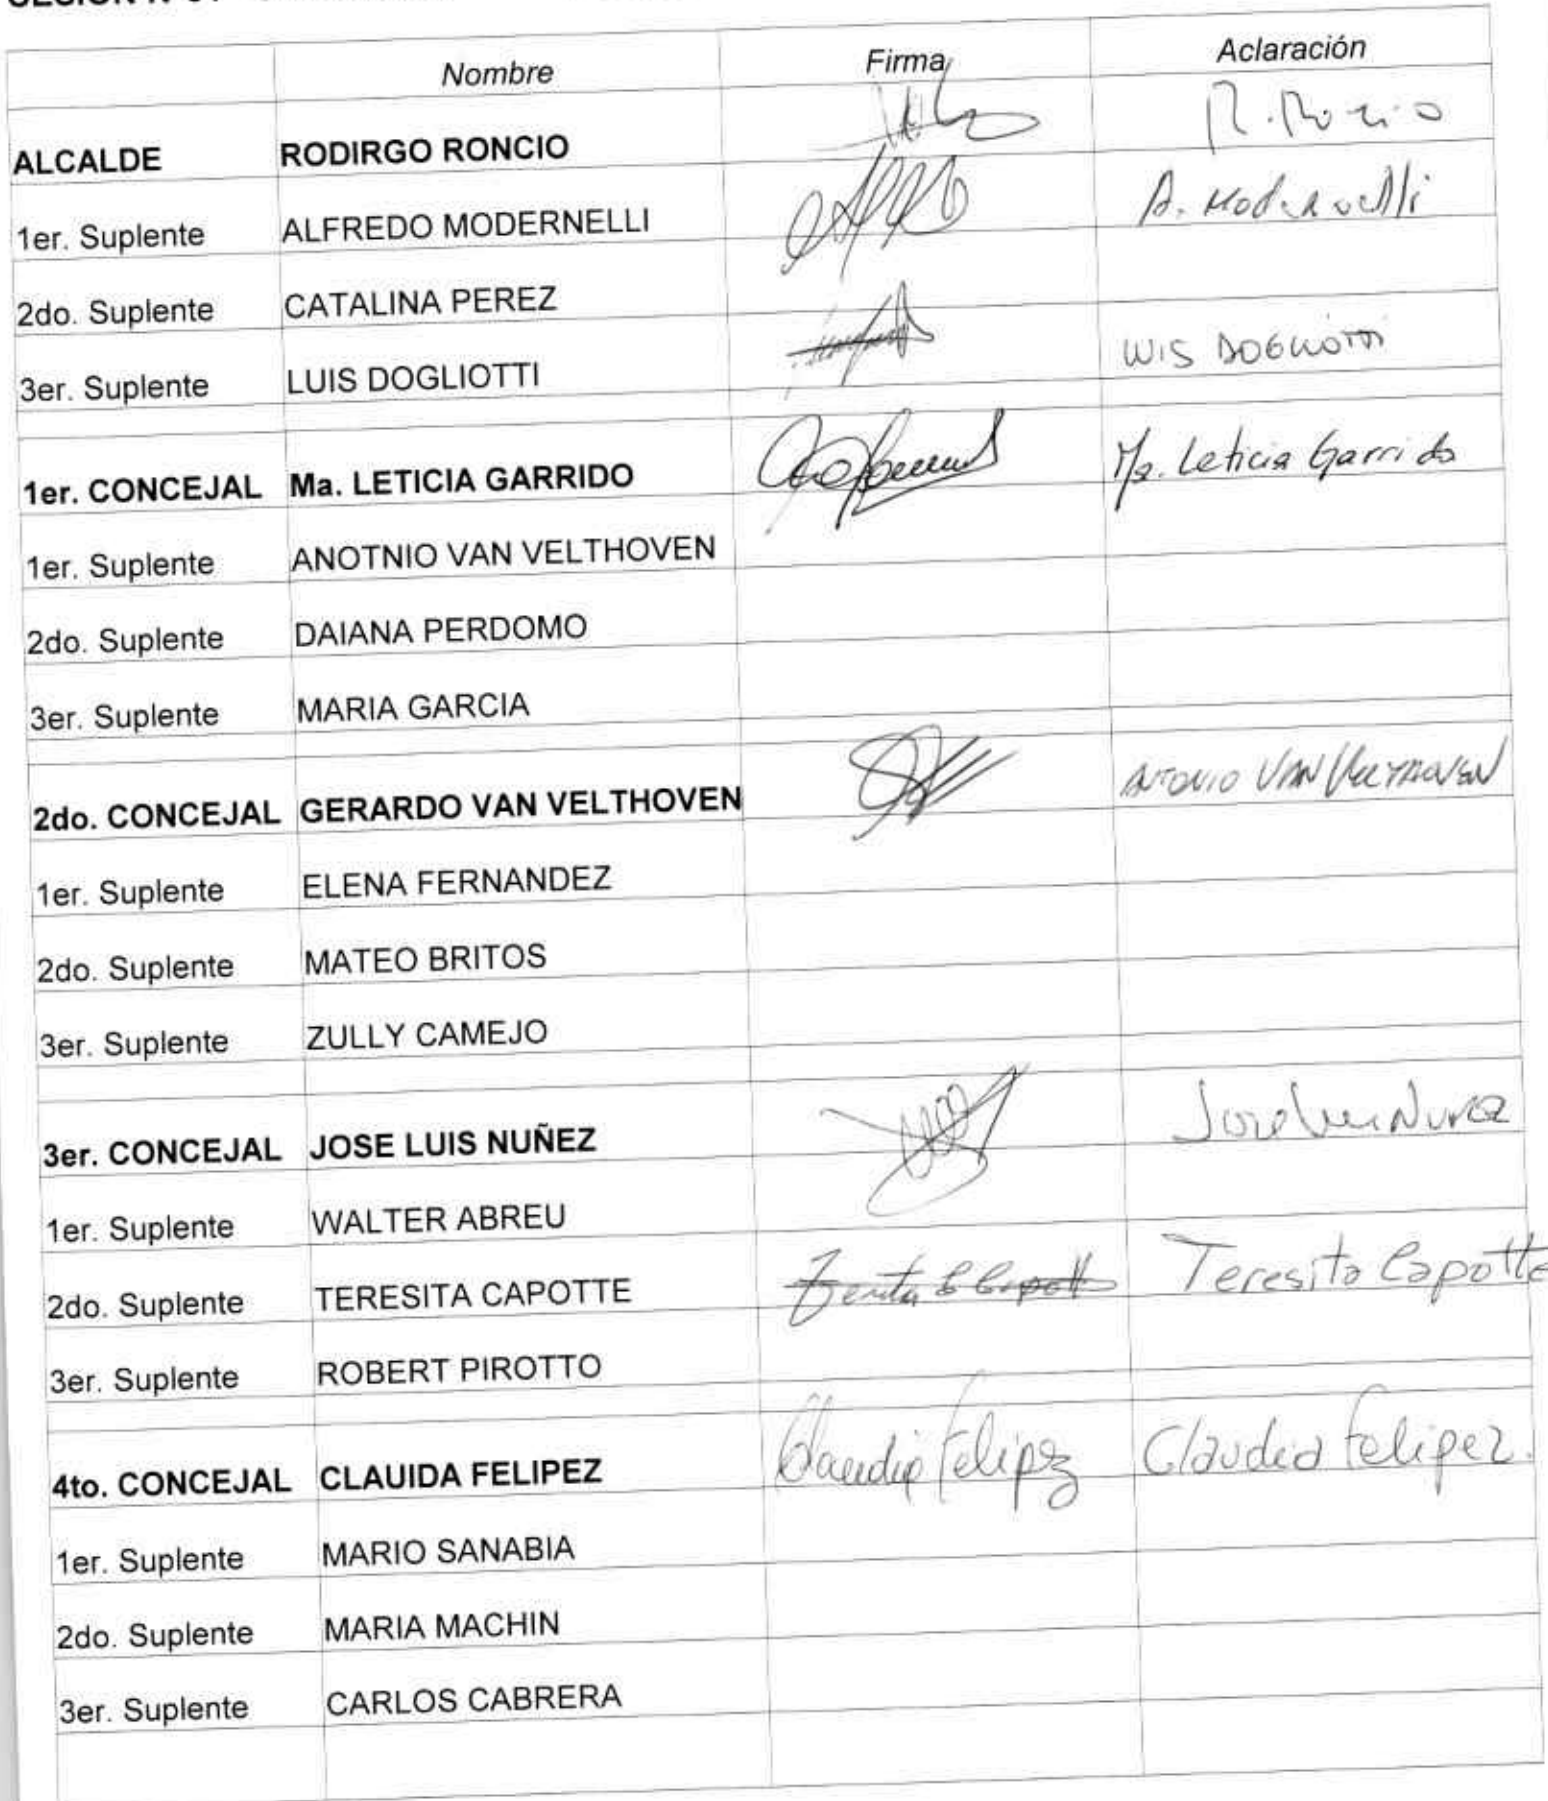 Nombre Firma Aclaración
ALCALDE RODIRGO RONCIO R. Roncio
1er. Suplente ALFREDO MODERNELLI A. Modernelli
2do. Suplente CATALINA PEREZ
3er. Suplente LUIS DOGLIOTTI LUIS DOGLIOTTI
1er. CONCEJAL Ma. LETICIA GARRIDO Ma. Leticia Garrido
1er. Suplente ANOTNIO VAN VELTHOVEN
2do. Suplente DAIANA PERDOMO
3er. Suplente MARIA GARCIA
2do. CONCEJAL GERARDO VAN VELTHOVEN ANTONIO VAN VELTHOVEN
1er. Suplente ELENA FERNANDEZ
2do. Suplente MATEO BRITOS
3er. Suplente ZULLY CAMEJO
3er. CONCEJAL JOSE LUIS NUÑEZ Jose Luis Nuñez
1er. Suplente WALTER ABREU
2do. Suplente TERESITA CAPOTTE Teresita Capotte
3er. Suplente ROBERT PIROTTO
4to. CONCEJAL CLAUIDA FELIPEZ Claudia Felipez Claudia Felipez.
1er. Suplente MARIO SANABIA
2do. Suplente MARIA MACHIN
3er. Suplente CARLOS CABRERA